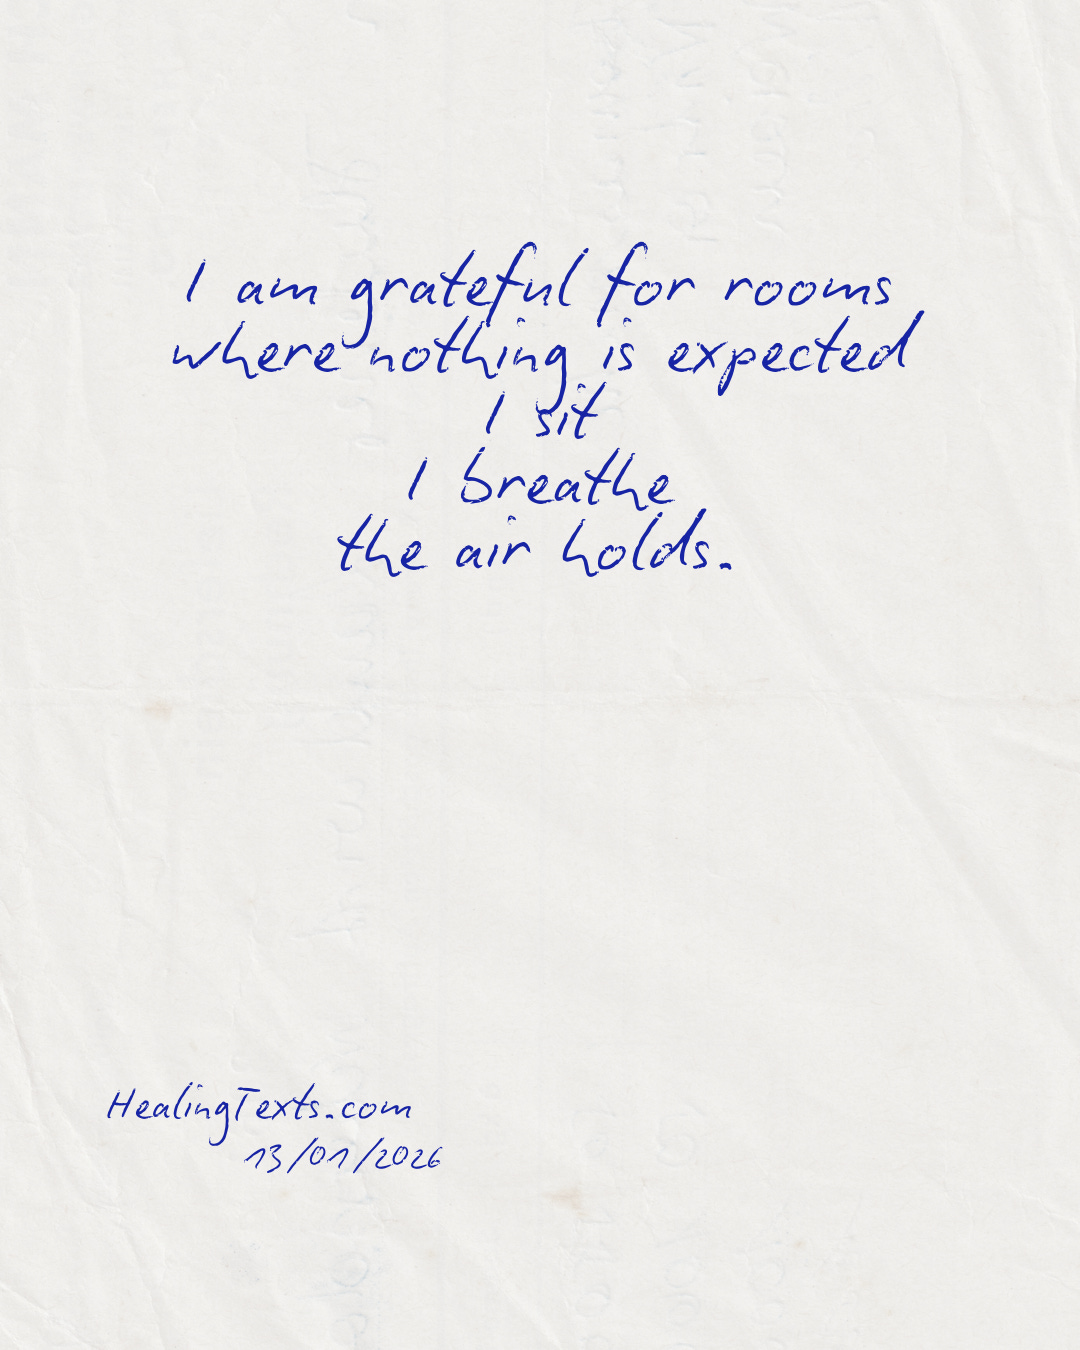 I am grateful for rooms
where nothing is expected
I sit
I breathe
the air holds.
HealingTexts.com
13/01/2026